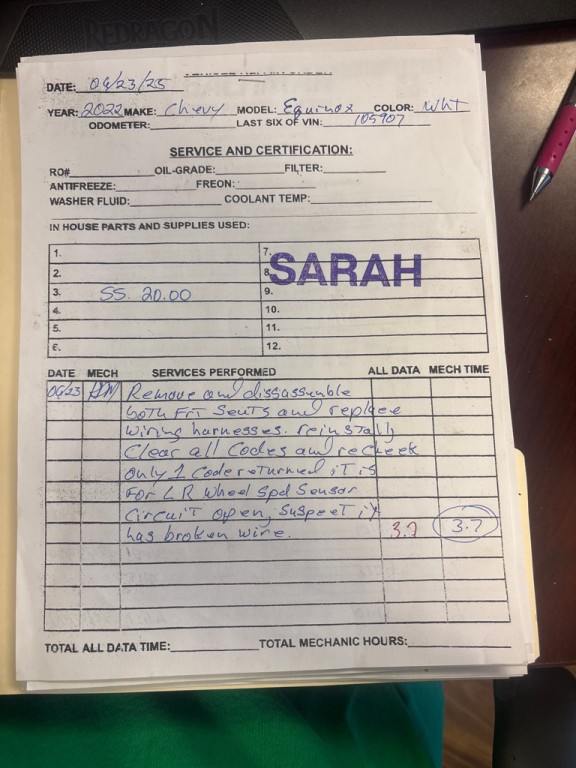 REDRAGON
DATE: 06/23/25
YEAR: 2022 MAKE: Chevy MODEL: Equinox COLOR: Wht
ODOMETER: LAST SIX OF VIN: 105907
SERVICE AND CERTIFICATION:
RO# OIL-GRADE: FILTER:
ANTIFREEZE: FREON:
WASHER FLUID: COOLANT TEMP:
IN HOUSE PARTS AND SUPPLIES USED:
1. 7.
2. 8. SARAH
3. SS. 20.00 9.
4. 10.
5. 11.
6. 12.
DATE MECH SERVICES PERFORMED ALL DATA MECH TIME
06/23 Remove and dissassemble
both Frt Seats and replace
wiring harnesses. reinstall
Clear all Codes and recheck
only 1 Code returned, it is
For L R Wheel Spd Sensor
Circuit open, Suspect it
has broken wire. 3.7 3.7
TOTAL ALL DATA TIME: TOTAL MECHANIC HOURS: